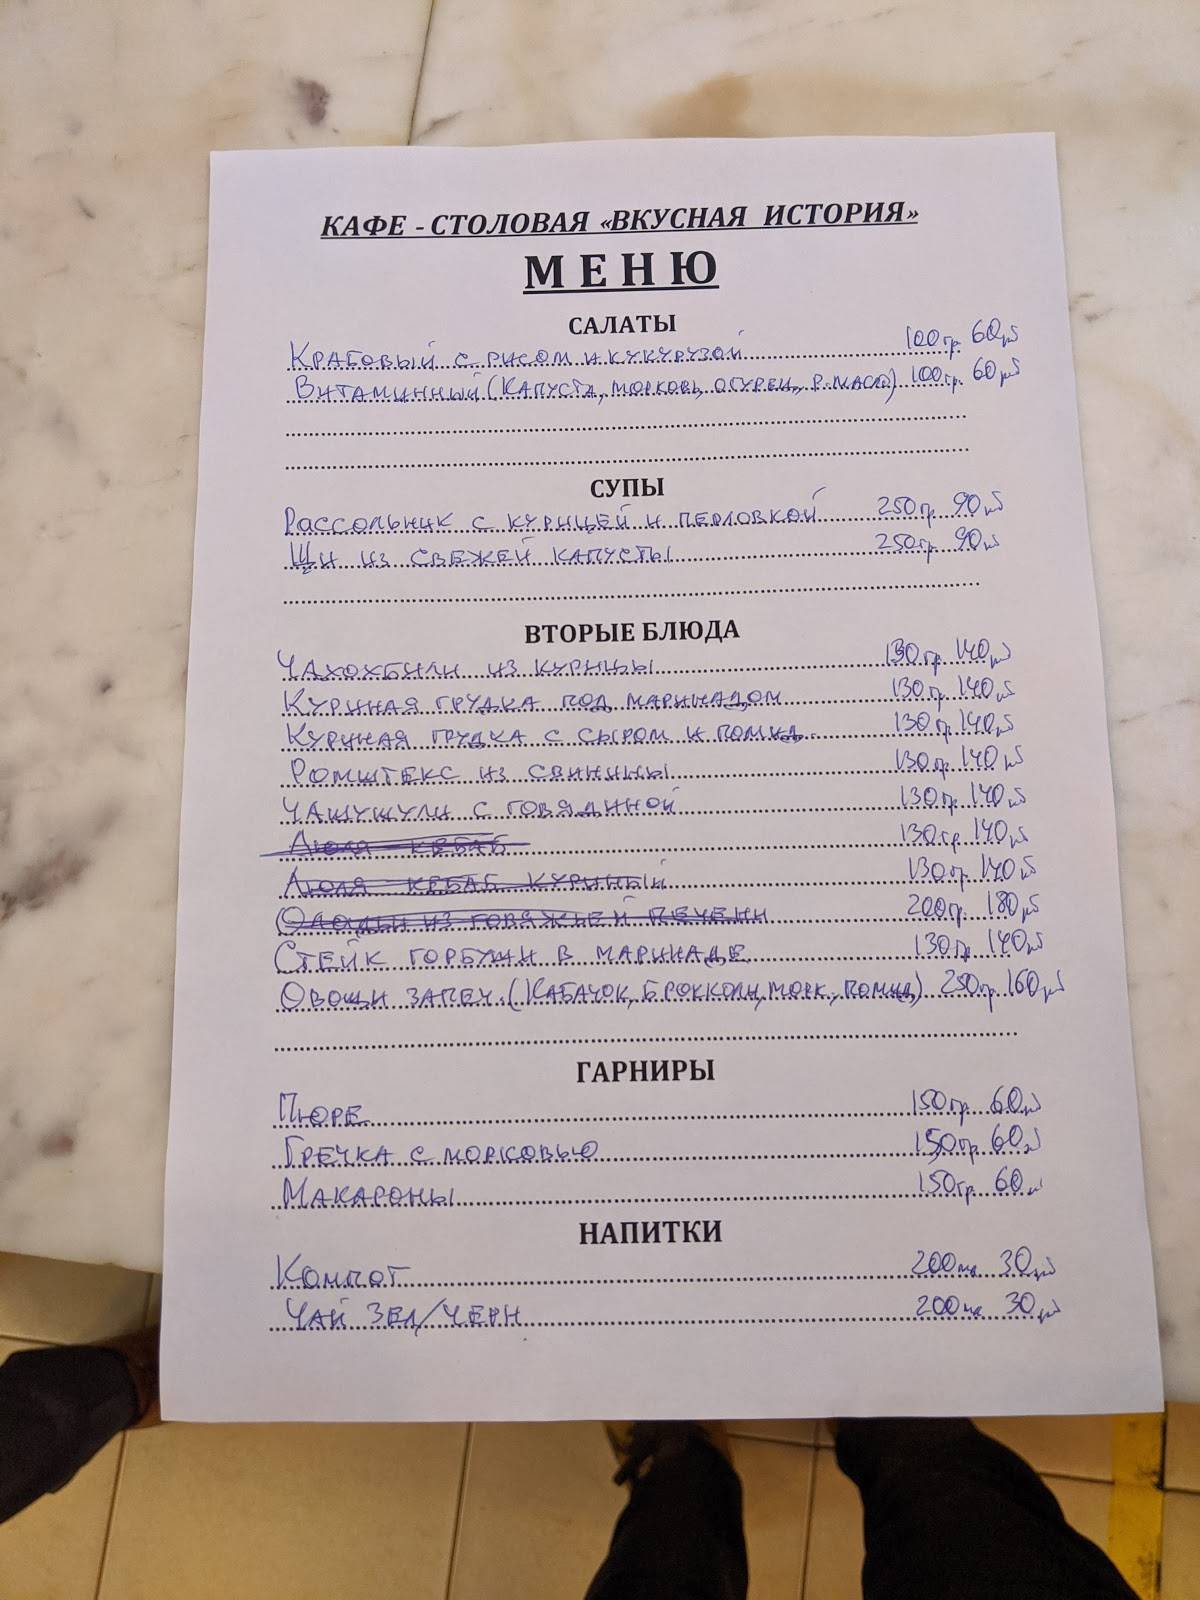 КАФЕ - СТОЛОВАЯ «ВКУСНАЯ ИСТОРИЯ»
МЕНЮ
САЛАТЫ
Крабовый с рисом и кукурузой 100гр 60рб
Витаминный (капуста, морковь, огурец, р.масло) 100гр. 60рб
СУПЫ
Рассольник с курицей и перловкой 250гр. 90рб
Щи из свежей капусты 250гр. 90рб
ВТОРЫЕ БЛЮДА
Чахохбили из курицы 130гр. 140рб
Куриная грудка под маринадом 130гр. 140рб
Куриная грудка с сыром и помид. 130гр. 140рб
Ромштекс из свинины 130гр. 140рб
Чашушули с говядиной 130гр. 140рб
Люля кебаб 130гр. 140рб
Люля кебаб куриный 130гр. 140рб
Оладьи из говяжьей печени 200гр. 180рб
Стейк горбуши в маринаде 130гр. 140рб
Овощи запеч. (кабачок, брокколи, морк., помид) 250гр. 160рб
ГАРНИРЫ
Пюре 150гр. 60рб
Гречка с морковью 150гр. 60рб
Макароны 150гр. 60рб
НАПИТКИ
Компот 200мл 30рб
Чай зел/черн 200мл 30рб